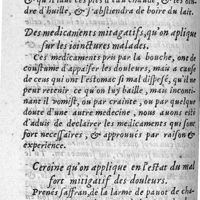 d'huille, & s'abstiendra de boire du lait.
Des medicaments mitagatifs, qu'on aplique
sur les ioinctures malades.
Ces medicaments pris par la bouche, ont de
coustume d'appaiser les douleurs, mais a cause
de ceux qui ont l'estomac si mal dispose, qu'il ne
peut retenir ce qu'on luy baille, mais tout incon-
tinent le vomist, ou par crainte, ou par quelque
douleur d'une autre medecine, nous auons esté
d'aduis de declairer les medicaments qui sont
fort necessaires, & approuués par raison &
experience.
Ceroine qu'on applique en l'estat du mal
fort mitigatif des douleurs.
Prenés saffran, de la larme de pauot de cha-